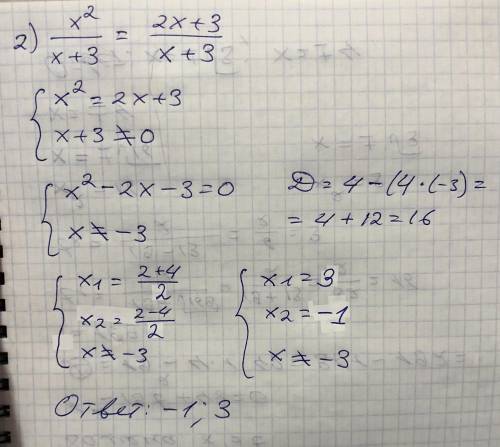 2) x²/(x+3) = (2x+3)/(x+3)
{ x² = 2x+3
x+3 ≠ 0
{ x² - 2x - 3 = 0
x ≠ -3
D = 4 - (4·(-3) =
= 4 + 12 = 16
{ x1 = (2+4)/2
x2 = (2-4)/2
x ≠ -3
{ x1 = 3
x2 = -1
x ≠ -3
Ответ: -1; 3